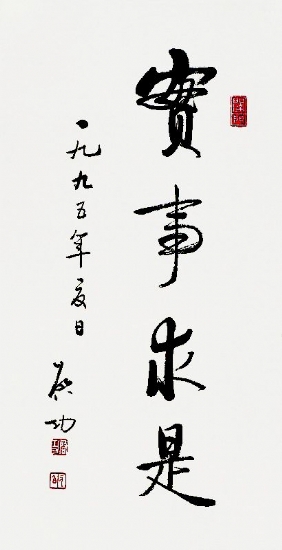 實事求是
一九九五年夏日
啟功